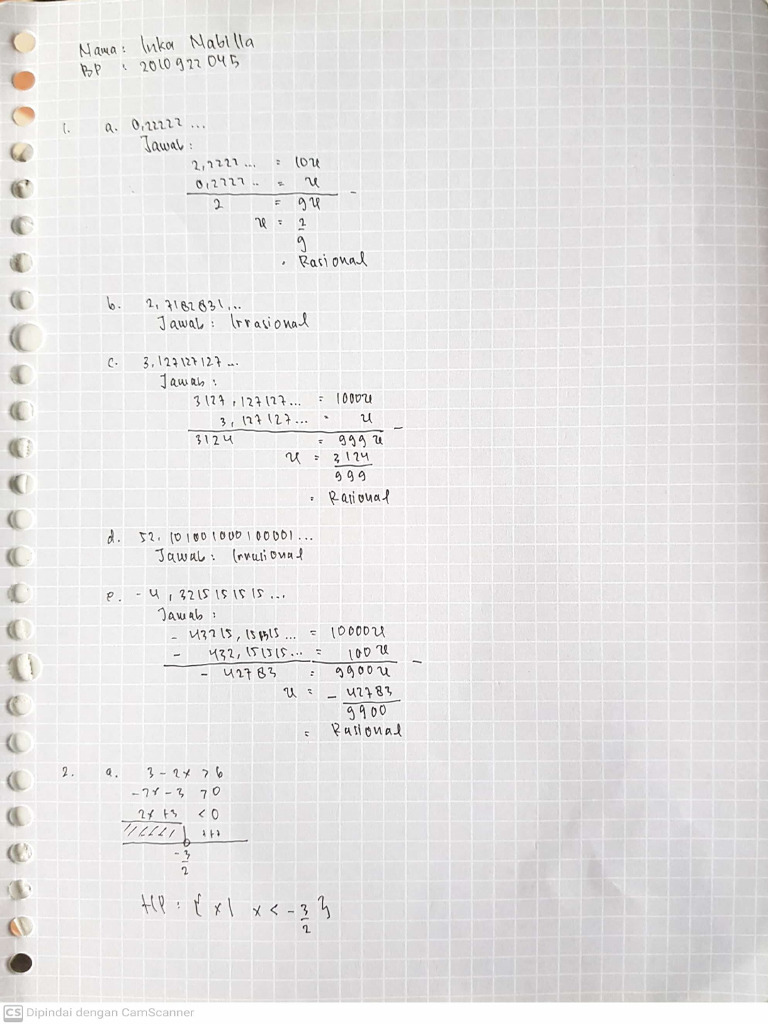 Nama : Inka Nabilla
BP : 2010922045
1. a. 0,22222 ...
Jawab :
2,2222 ... = 10x
0,2222 .. = x
2 = 9x
x = 2
9
= Rasional
b. 2,7182831,..
Jawab : Irrasional
c. 3,127127127 ...
Jawab :
3127,127127... = 1000x
3,127127... = x
3124 = 999x
x = 3124
999
= Rasional
d. 52,101001000100001...
Jawab : Irrasional
e. -4,3215151515...
Jawab :
- 43215,151515... = 10000x
- 432,151515... = 100x
- 42783 = 9900x
x = - 42783
9900
= Rasional
2. a. 3 - 2x > 6
-2x - 3 > 0
2x + 3 < 0
+++
-3
2
HP : { x | x < - 3 }
2
CS Dipindai dengan CamScanner